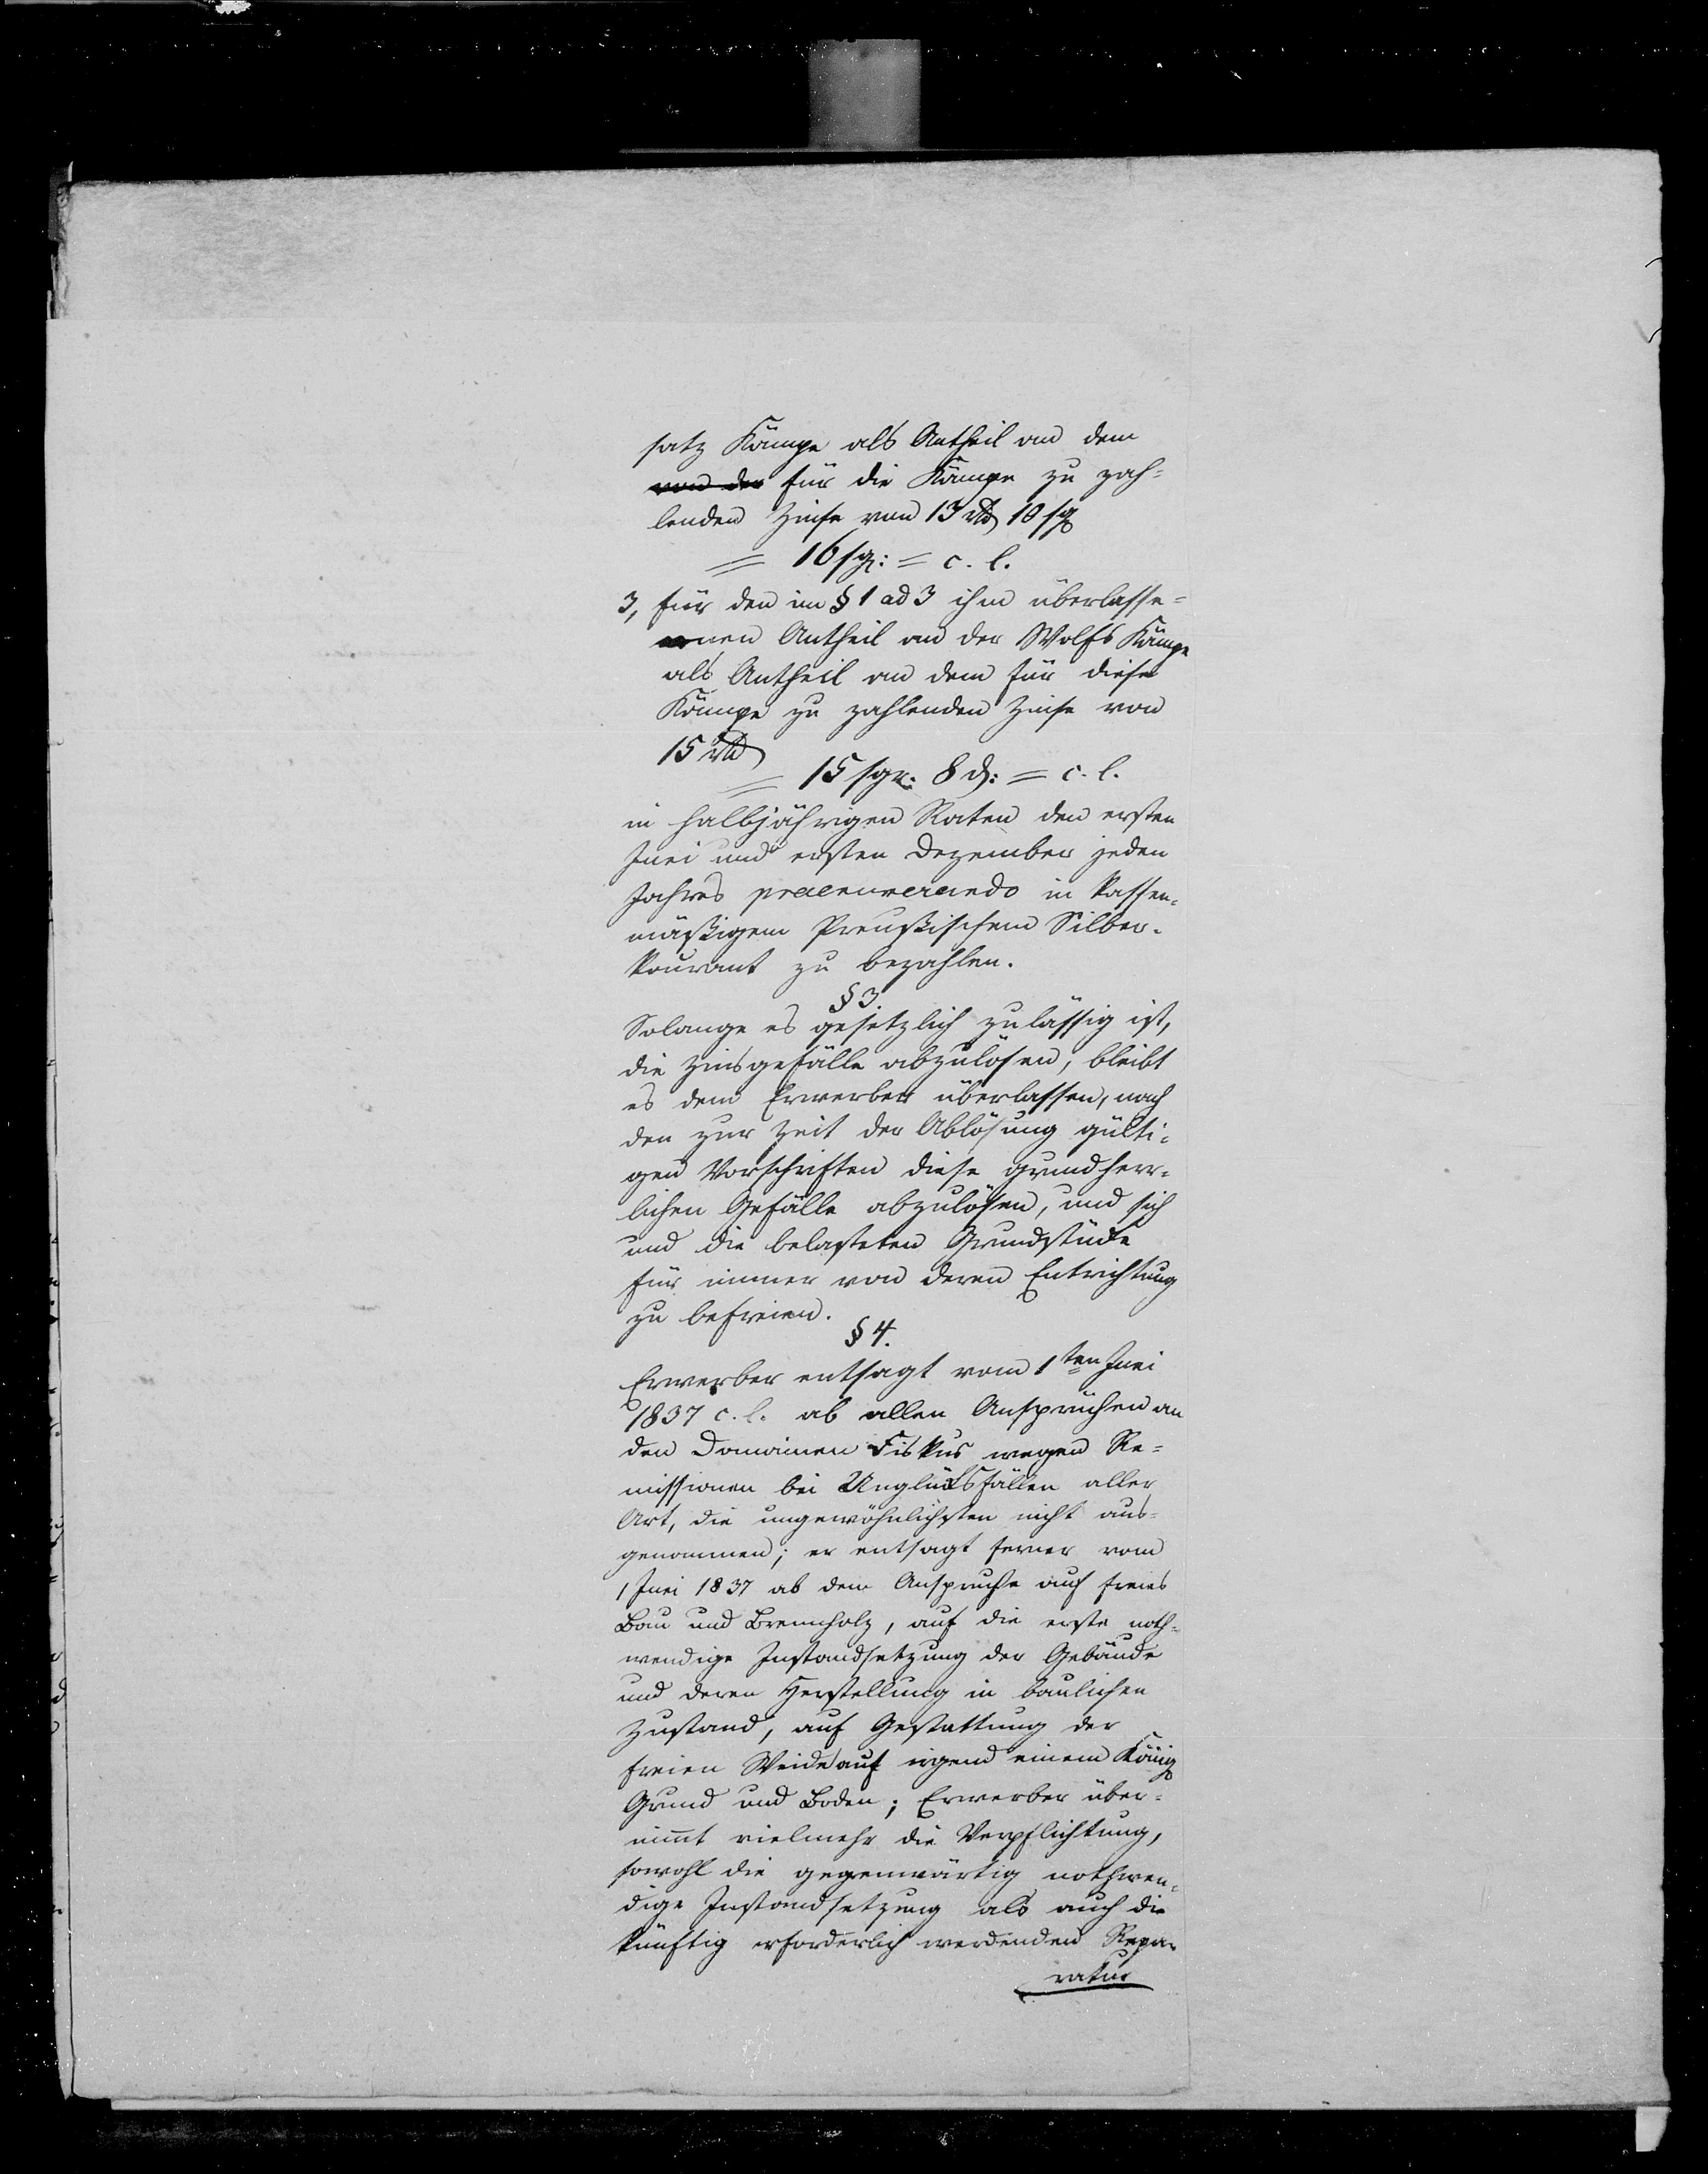 satz Kämpe als Antheil an dem
von der für die Kämpe zu zah-
lenden Zinse von 13 rtl 10 sg
= 16 sg: = c. l.
3, für den im § 1 ad 3 ihm überlasse-
nen Antheil an der Wolfs Kämpe
als Antheil an dem für diese
Kämpe zu zahlenden Zinse von
15 rtl
= 15 sgr. 8 d: = c. l.
in halbjährigen Raten den ersten
Juni und ersten Dezember jeden
Jahres praenumerando in kassen-
mäßigem Preußischem Silber-
kourant zu bezahlen.
§ 3.
Solange es gesetzlich zulässig ist,
die Zinsgefälle abzulösen, bleibt
es dem Erwerber überlassen, nach
den zur Zeit der Ablösung gülti-
gen Vorschriften diese grundherr-
lichen Gefälle abzulösen, und sich
und die belasteten Grundstücke
für immer von deren Entrichtung
zu befreien.
§ 4.
Erwerber entsagt vom 1ten Juni
1837 c. l. ab allen Ansprüchen an
den Domainen Fiskus wegen Re-
missionen bei Unglücksfällen aller
Art, die ungewöhnlichsten nicht aus-
genommen; er entsagt ferner vom
1 Juni 1837 ab dem Anspruche auf freies
Bau und Brennholz, auf die erste noth-
wendige Instandsetzung der Gebäude
und deren Herstellung in baulichen
Zustand, auf Gestattung der
freien Weide auf irgend einem König
Grund und Boden; Erwerber über-
nimmt vielmehr die Verpflichtung,
sowohl die gegenwärtig nothwen-
dige Instandsetzung als auch die
künftig erforderlich werdenden Repa-
ratur